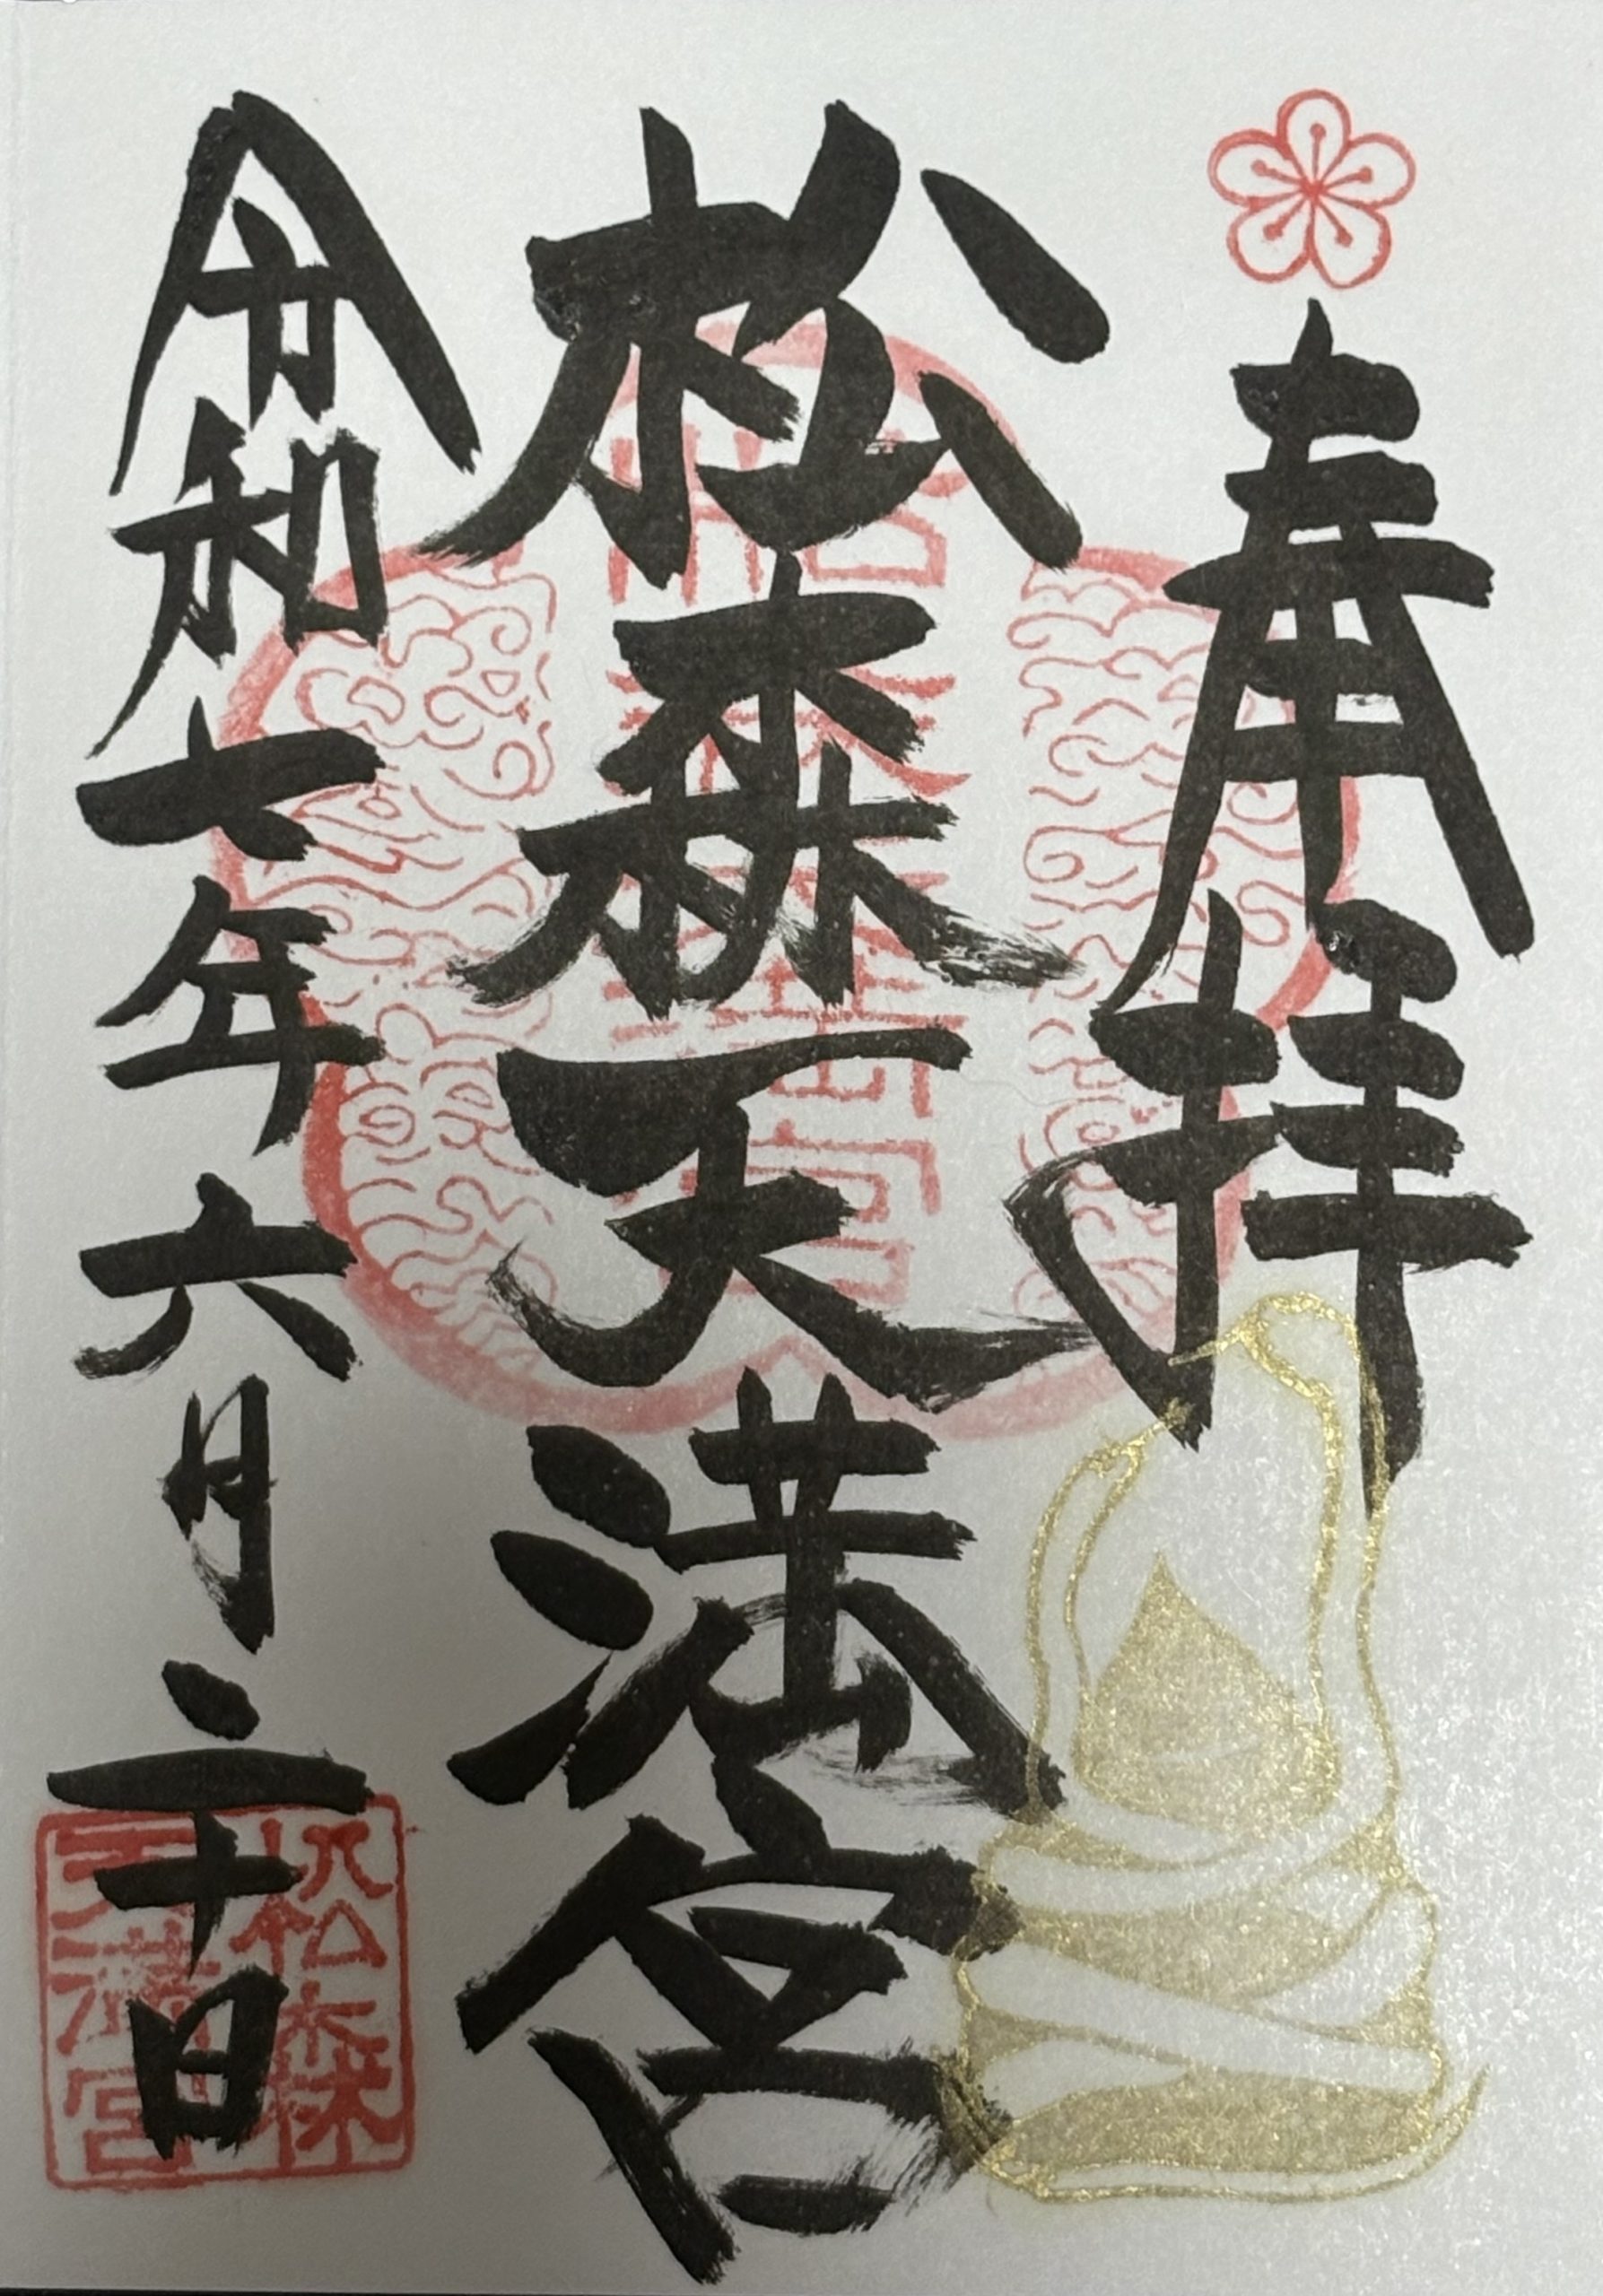 奉拝
松森天満宮
令和七年六月二十日
松森
天満宮